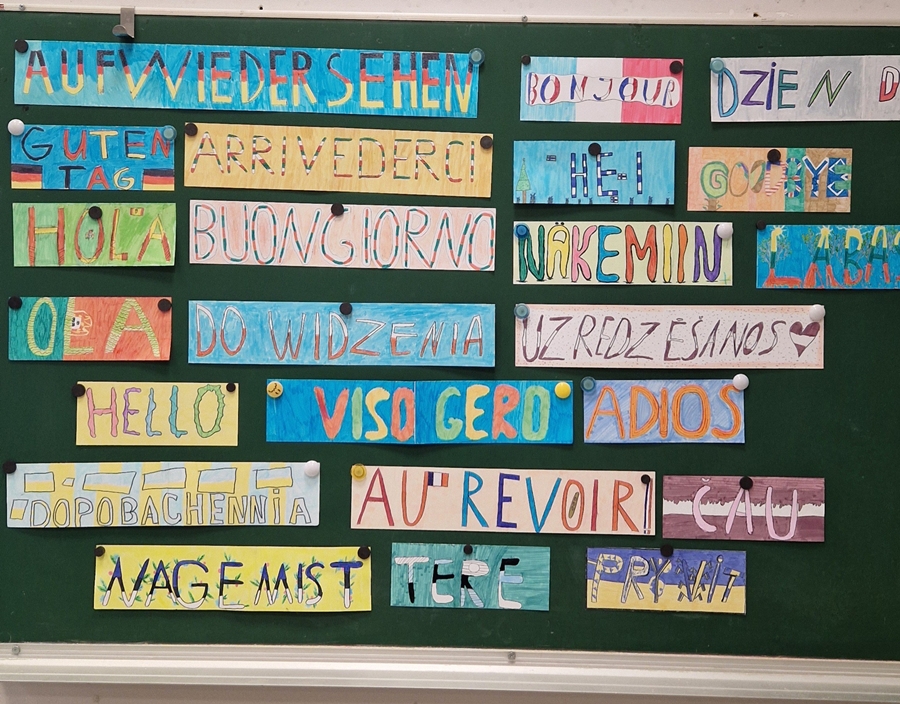 AUFWIEDERSEHEN
BONJOUR
DZIEN D
GUTEN
TAG
ARRIVEDERCI
HEI
GOODBYE
HOLA
BUONGIORNO
NÄKEMIIN
LABAS
OLA
DO WIDZENIA
UZ REDZĒŠANOS
HELLO
VISO GERO
ADIOS
DOPOBACHENNIA
AU REVOIR!
ČAU
NAGEMIST
TERE
PRYVIT